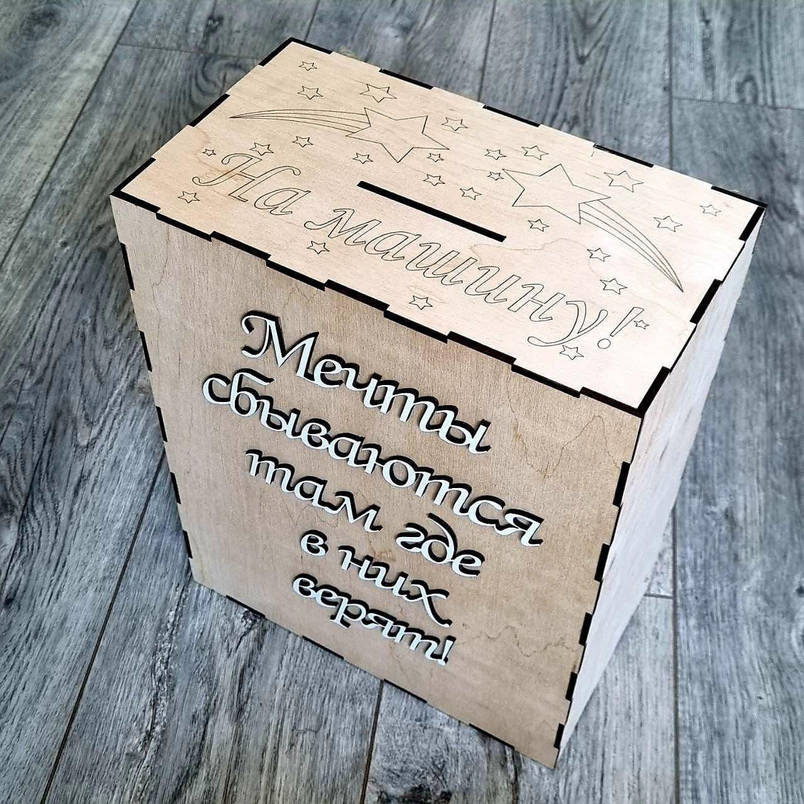 На машину!
Мечты
сбываются
там где
в них
верят!